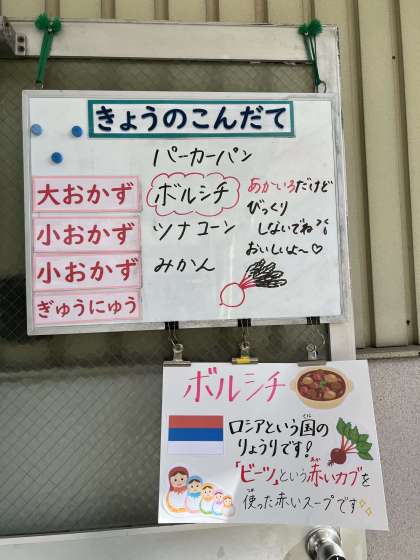 きょうのこんだて
パーカーパン
大おかず
ボルシチ
あかいろだけど
びっくり
しないでね
おいしいよ〜♡
小おかず
ツナコーン
小おかず
みかん
ぎゅうにゅう
ボルシチ
ロシアという国(くに)の
りょうりです!
「ビーツ」という赤(あか)いカブを
使った赤いスープです